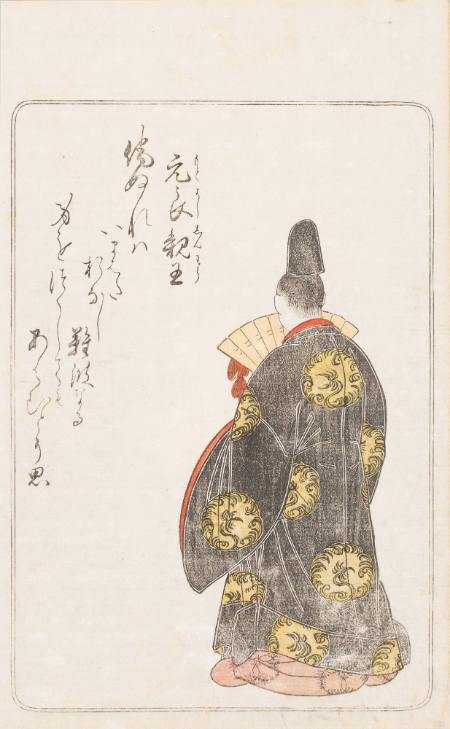 もとよししんわう
元良親王
侘ぬれハ
いまはた
おなし
難波なる
身をつくしても
あはむとそ思